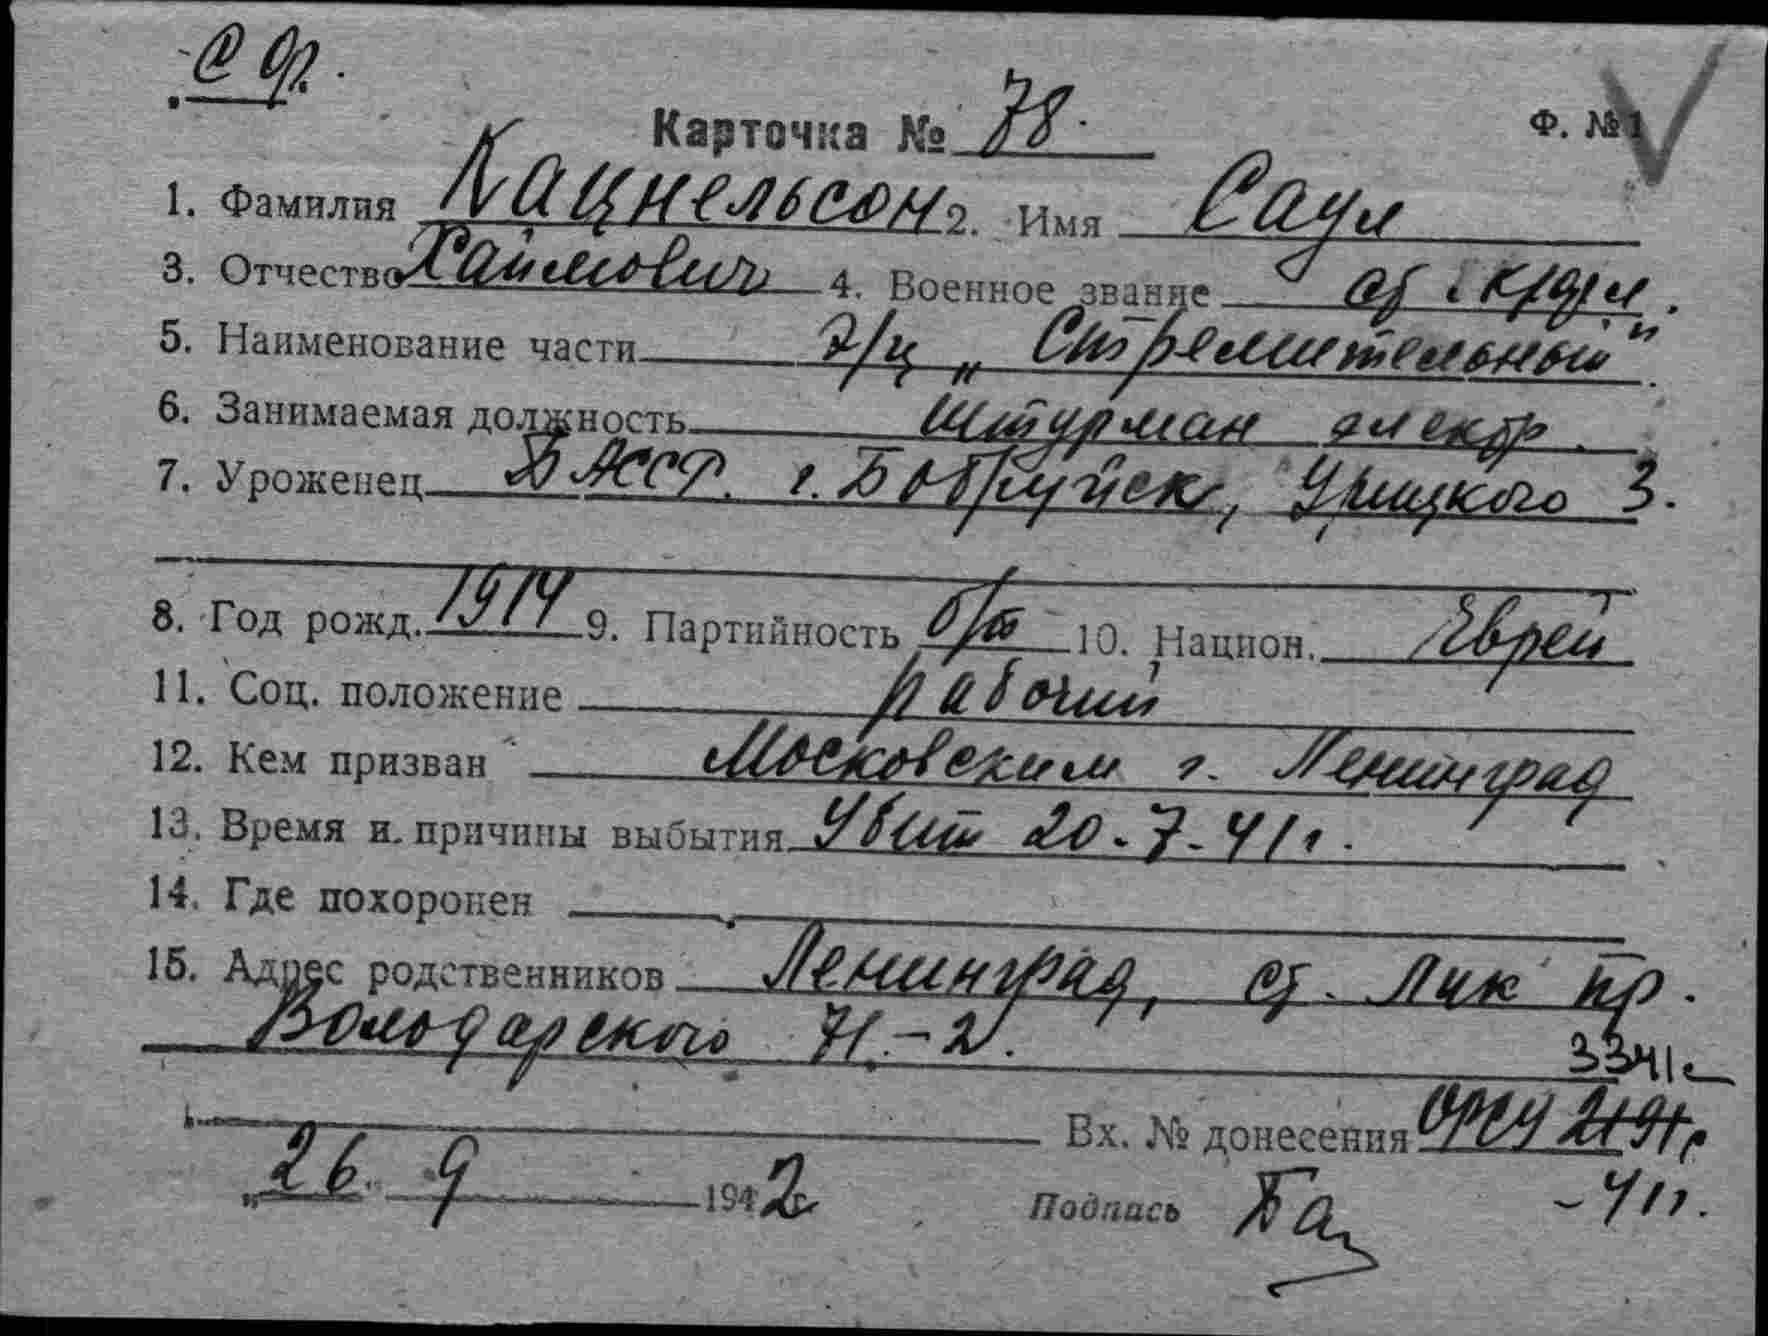 С ф.
Карточка № 78. Ф. № 1
1. Фамилия Кацнельсон 2. Имя Саул
3. Отчество Хаимович 4. Военное звание ст. кр-фл.
5. Наименование части э/ц „Стремительный"
6. Занимаемая должность штурман электр.
7. Уроженец БАССР. г. Бобруйск, Урицкого 3.
8. Год рожд. 1914 9. Партийность б/п 10. Национ. Еврей
11. Соц. положение рабочий
12. Кем призван Московским г. Ленинград
13. Время и причины выбытия Убит 20-7-41 г.
14. Где похоронен
15. Адрес родственников Ленинград, ст. Лик пр.
Володарского 71-2.
Вх. № донесения 2191с
3341с
-41 г.
„26" 9 1942 г. Подпись